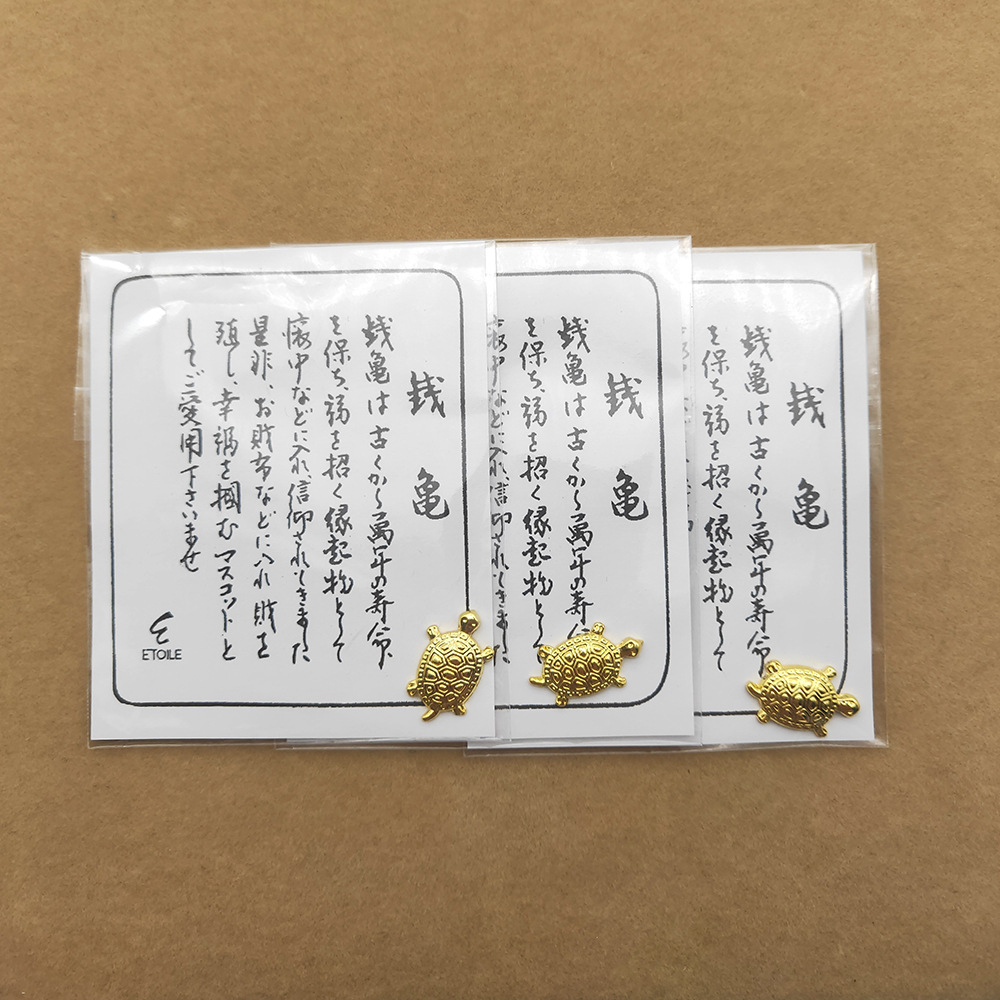 銭亀
銭亀は古くから萬年の寿命
を保ち、福を招く縁起物として
懐中などに入れ、信仰されてきました
是非、お財布などに入れ財を
殖し、幸福を掴むマスコットと
してご愛用下さいませ
ETOILE
銭亀
銭亀は古くから萬年の寿命
を保ち、福を招く縁起物として
懐中などに入れ、信仰されてきました
銭亀
銭亀は古くから萬年の寿命
を保ち、福を招く縁起物として